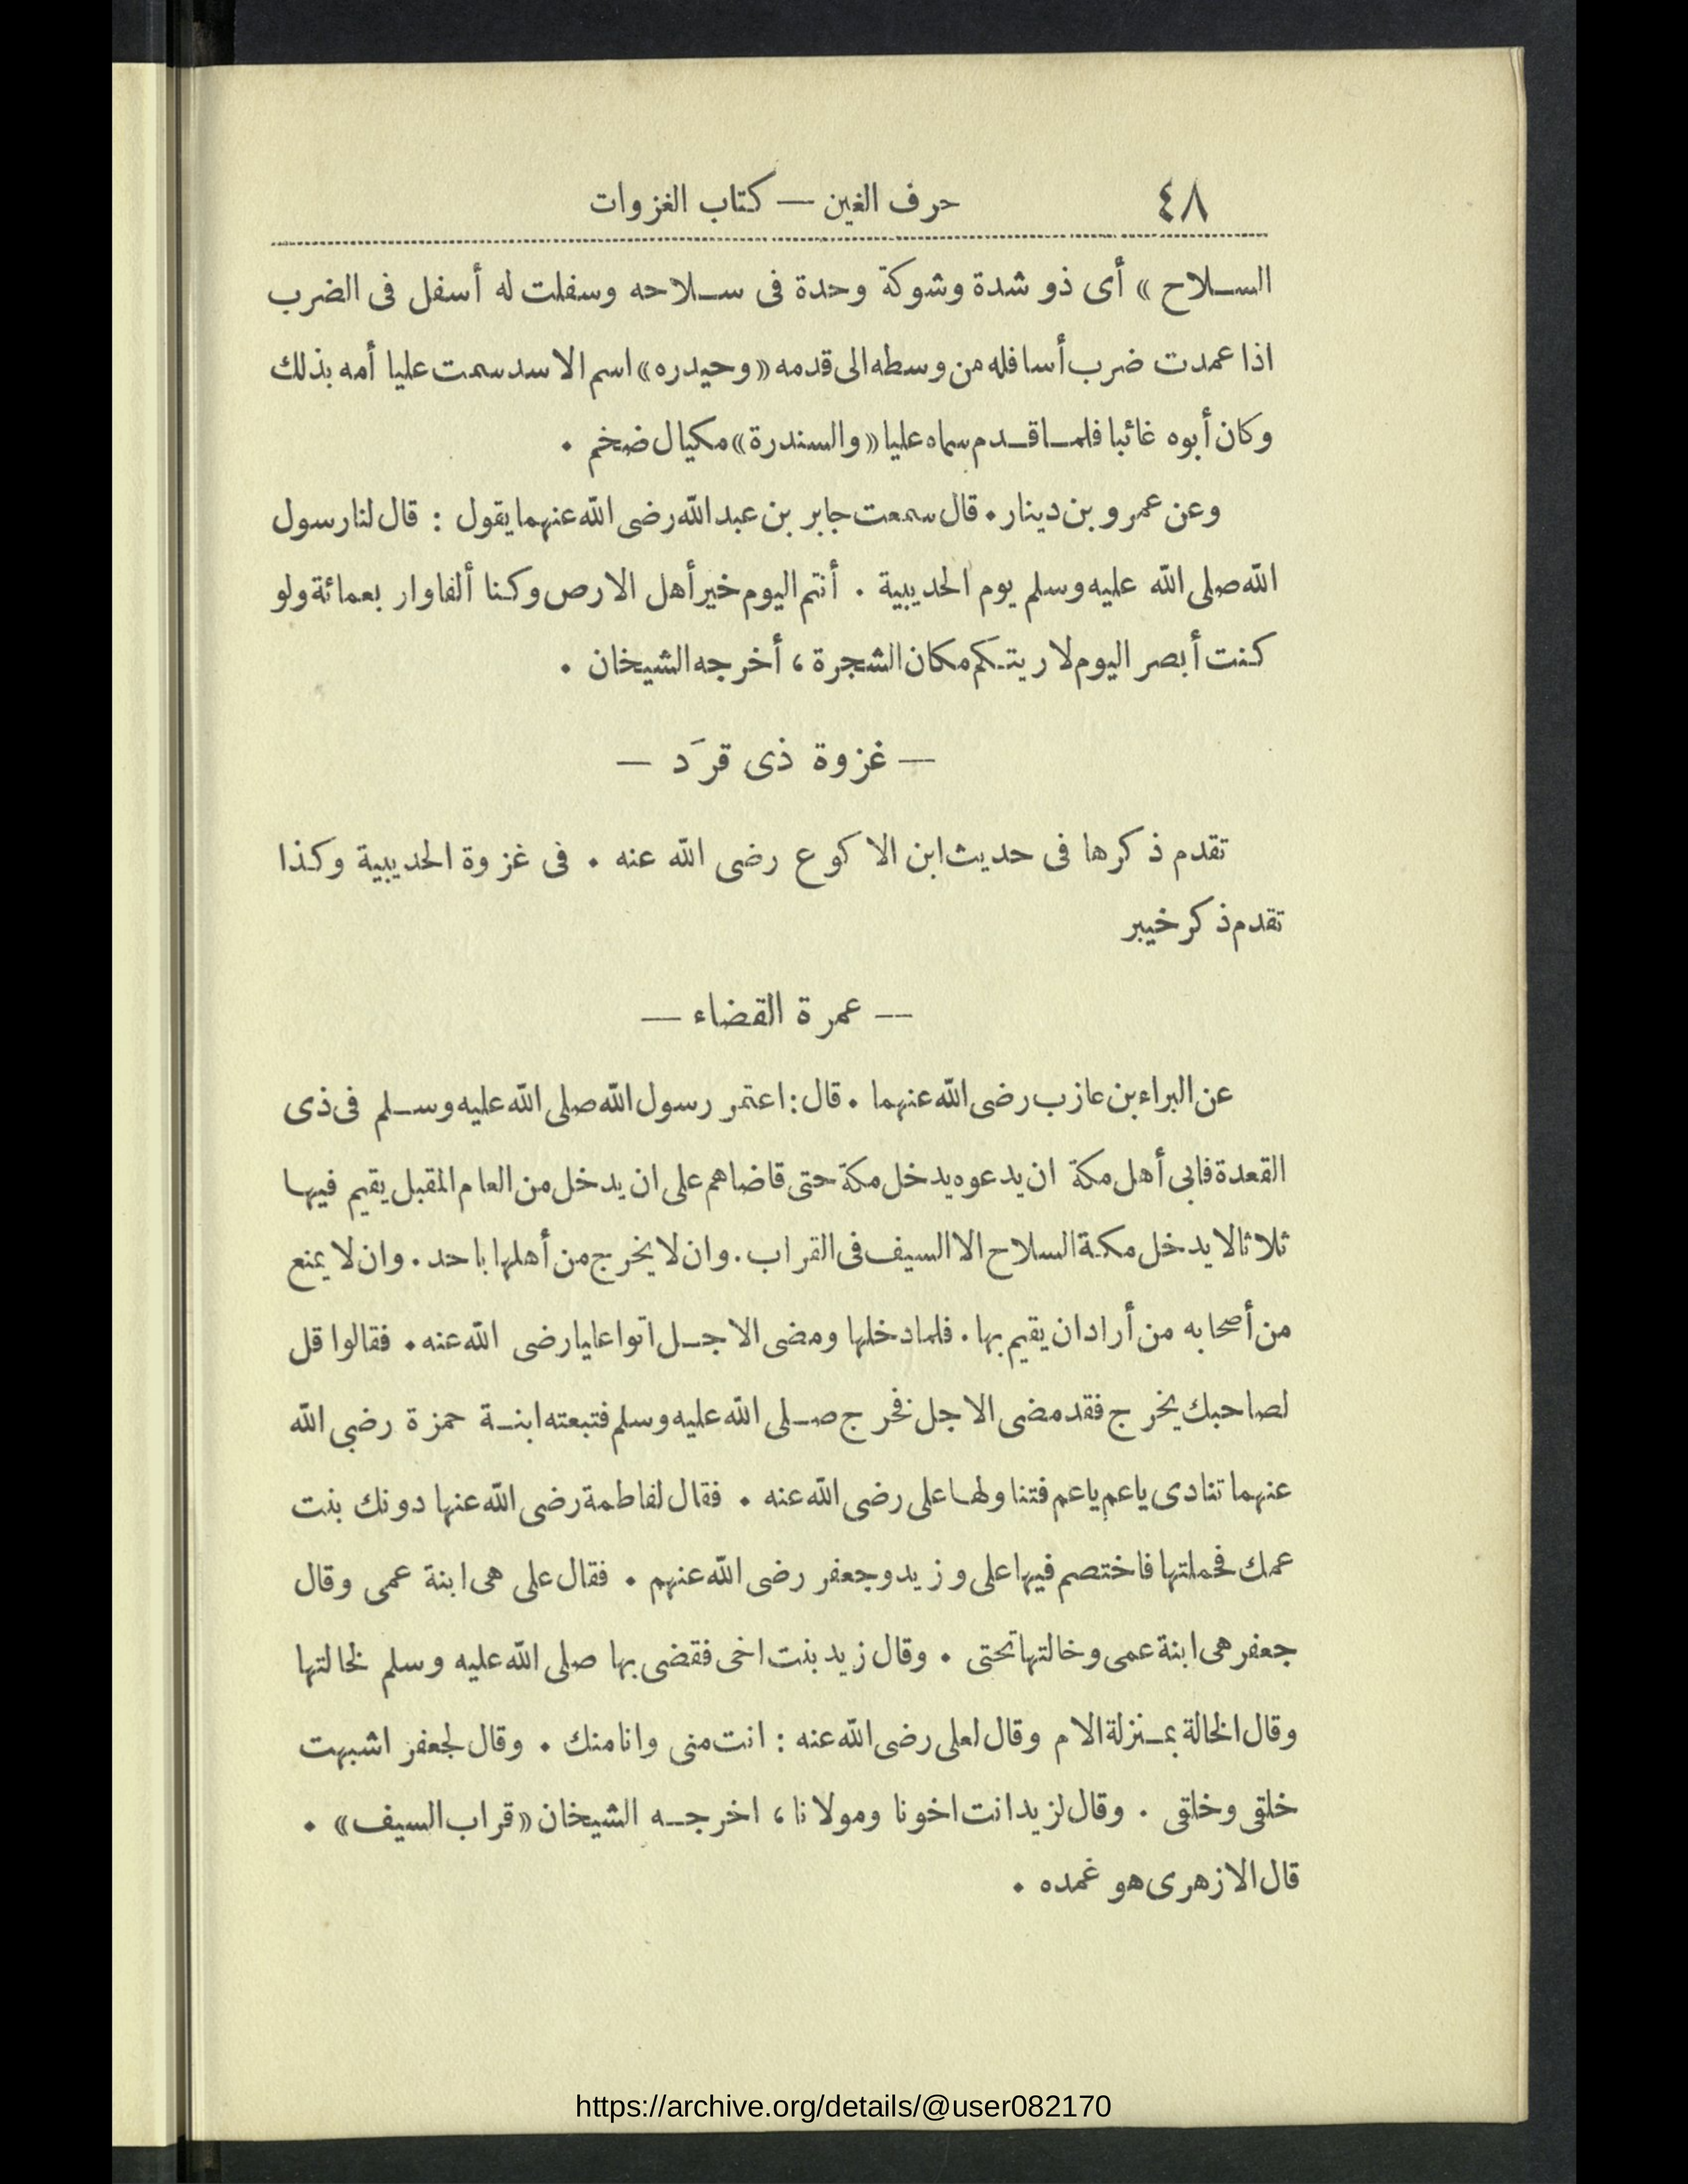 ٤٨ حرف الغين — كتاب الغزوات
السلاح » أى ذو شدة وشوكة وحدة فى سلاحه وسفلت له أسفل فى الضرب
اذا عمدت ضرب أسافله من وسطه الى قدمه «وحيدره» اسم الاسد سمت عليا أمه بذلك
وكان أبوه غائبا فلما قدم سماه عليا «والسندرة» مكيال ضخم .
وعن عمرو بن دينار . قال سمعت جابر بن عبد الله رضى الله عنهما يقول : قال لنا رسول
الله صلى الله عليه وسلم يوم الحديبية . أنتم اليوم خير أهل الارض وكنا ألفا وار بعمائة ولو
كنت أبصر اليوم لاريتكم مكان الشجرة ، أخرجه الشيخان .
— غزوة ذى قرَد —
تقدم ذكرها فى حديث ابن الاكوع رضى الله عنه . فى غزوة الحديبية وكذا
تقدم ذكر خيبر
— عمرة القضاء —
عن البراء بن عازب رضى الله عنهما . قال : اعتمر رسول الله صلى الله عليه وسلم فى ذى
القعدة فابى أهل مكة ان يدعوه يدخل مكة حتى قاضاهم على ان يدخل من العام المقبل يقيم فيها
ثلاثا لا يدخل مكة السلاح الا السيف فى القراب . وان لا يخرج من أهلها باحد . وان لا يمنع
من أصحابه من أراد ان يقيم بها . فلما دخلها ومضى الاجل اتوا عليا رضى الله عنه . فقالوا قل
لصاحبك يخرج فقد مضى الاجل فخرج صلى الله عليه وسلم فتبعته ابنة حمزة رضى الله
عنهما تنادى ياعم ياعم فتناولها على رضى الله عنه . فقال لفاطمة رضى الله عنها دونك بنت
عمك فحملتها فاختصم فيها على وزيد وجعفر رضى الله عنهم . فقال على هى ابنة عمى وقال
جعفر هى ابنة عمى وخالتها تحتى . وقال زيد بنت اخى فقضى بها صلى الله عليه وسلم لخالتها
وقال الخالة بمنزلة الام وقال لعلى رضى الله عنه : انت منى وانا منك . وقال لجعفر اشبهت
خلقى وخلقى . وقال لزيد انت اخونا ومولانا ، اخرجه الشيخان «قراب السيف» .
قال الازهرى هو غمده .
https://archive.org/details/@user082170